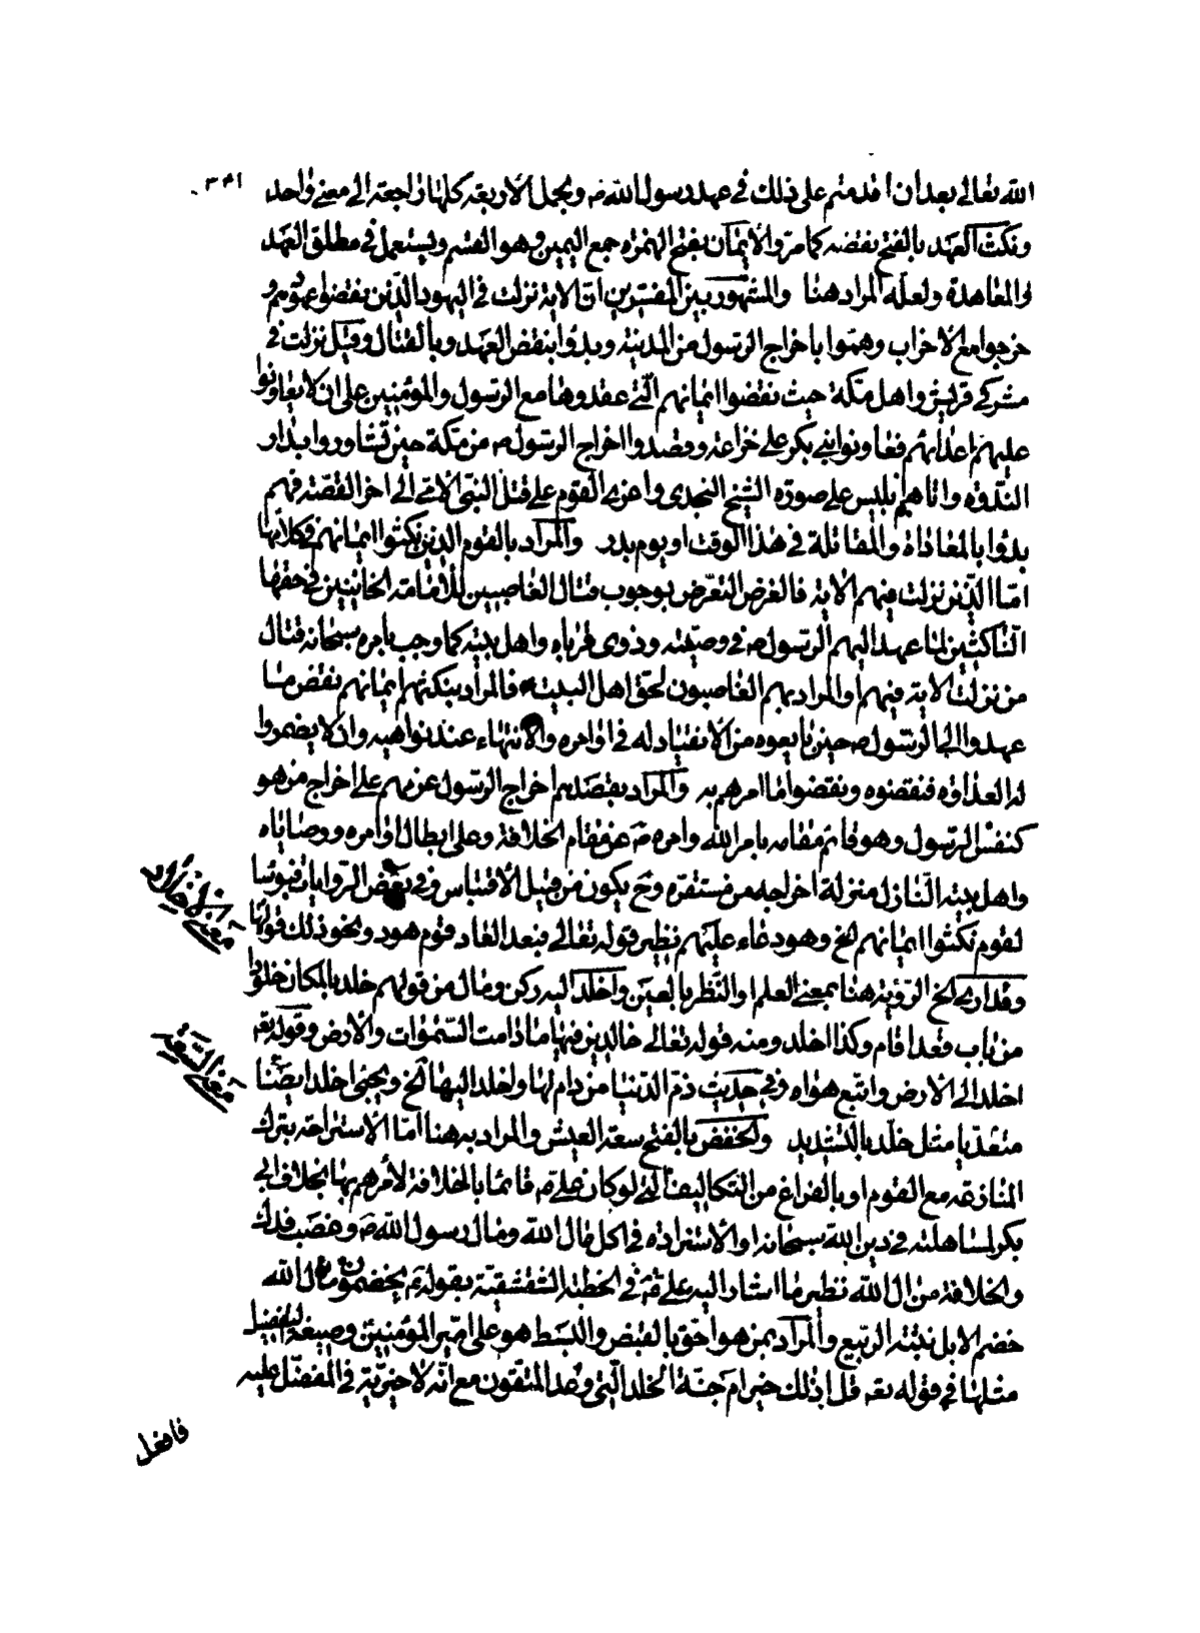 ٣٤١
الله تعالى بعد ان اقدمتم على ذلك في عهد رسول الله ص والجمل الاربعة كلها راجعة الى معنى واحد
ونكث العهد بالفتح نقضه كما مرّ والأيمان بفتح الهمزه جمع اليمين وهو القسم ويستعمل في مطلق العهد
والمعاهدة ولعله المراد هنا والمشهور بين المفسّرين انّ الاية نزلت في اليهود الّذين نقضوا عهودهم و
خرجوا مع الاحزاب وهمّوا باخراج الرّسول من المدينة وبدؤا بنقض العهد وبالقتال وقيل نزلت في
مشركي قريش واهل مكة حيث نقضوا ايمانهم الّتي عقدوها مع الرسول والمؤمنين على ان لا يعاونوا
عليهم اعدائهم فعاونوا بني بكر على خزاعة وقصدوا اخراج الرّسول ص من مكة حين تشاوروا بدار
النّدوه واتاهم ابليس على صورة الشيخ النجدى واغرى القوم على قتل النبى الامّى الى اخر القصّة فهم
بدؤا بالمعاداة والمقاتلة في هذا الوقت او يوم بدر والمراد بالقوم الذين نكثوا ايمانهم في كلامها
امّا الّذين نزلت فيهم الاية فالغرض التعرّض بوجوب قتال الغاصبين للامامة الخائنين في حقها
النّاكثين لما عهد اليهم الرّسول ص في وصيّته وذوى قرباه واهل بيته كما وجب بامره سبحانه قتال
من نزلت الاية فيهم او المراد بهم الغاصبون لحق اهل البيت فالمراد بنكثهم ايمانهم نقض ما
عهدوا الى الرسول ص حين بايعوه من الانقياد له في اوامره والانتهاء عند نواهيه وان لا يضمروا
له العداوه فنقضوه ونقضوا ما امرهم به والمراد بقصدهم اخراج الرّسول عزمهم على اخراج من هو
كنفس الرّسول وهو قائم مقامه بامر الله وامره ص عن مقام الخلافة وعلى ابطال اوامره ووصاياه
واهل بيته النّازل منزلة اخراجه من مستقرّه وح يكون من قبيل الاقتباس وفي بعض الرّوايات فبؤسا
لقوم نكثوا ايمانهم الخ وهو دعاء عليهم نظير قوله تعالى فبعدا لعاد قوم هود ونحو ذلك قولها
وقد ارى الخ الرّؤية هنا بمعنى العلم او النّظر بالعين واخلد اليه ركن ومال من قولهم خلد بالمكان خلودا
من باب قعد اقام وكذا اخلد ومنه قوله تعالى خالدين فيها ما دامت السّموات والارض وقوله تعه
اخلد الى الارض واتبع هواه وفي حديث ذمّ الدّنيا من دام لها واخلد اليها الخ ويجئ اخلد ايضا
متعدّيا مثل خلّد بالتشديد والخفض بالفتح سعة العيش والمراد به هنا امّا الاستراحة بترك
المنازعة مع القوم او بالفراغ من التكاليف الّتي لو كان على ع قائما بالخلافة لامرهم بها بخلاف ابي
بكر لمساهلته في دين الله سبحانه او الاستغراده في اكل مال الله ومال رسول الله ص وغصب فدك
والخلافة من ال الله نظير ما اشار اليه على ع في الخطبة الشقشقيّة بقوله ع يخضمون مال الله
خضم الابل نبتة الربيع والمراد بمن هو احق بالقبض والبسط هو على امير المؤمنين وصيغة التفضيل
مثلها في قوله تعه قل اذلك خير ام جنّة الخلد الّتي وعد المتقون مع انّه لا خيريّة في المفضّل عليه
معنى الاخلاد
معنى السّعة